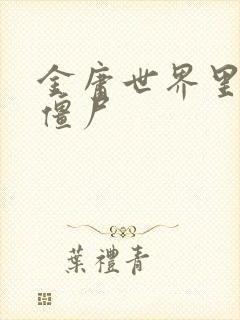 金庸世界里
僵尸
葉禮青